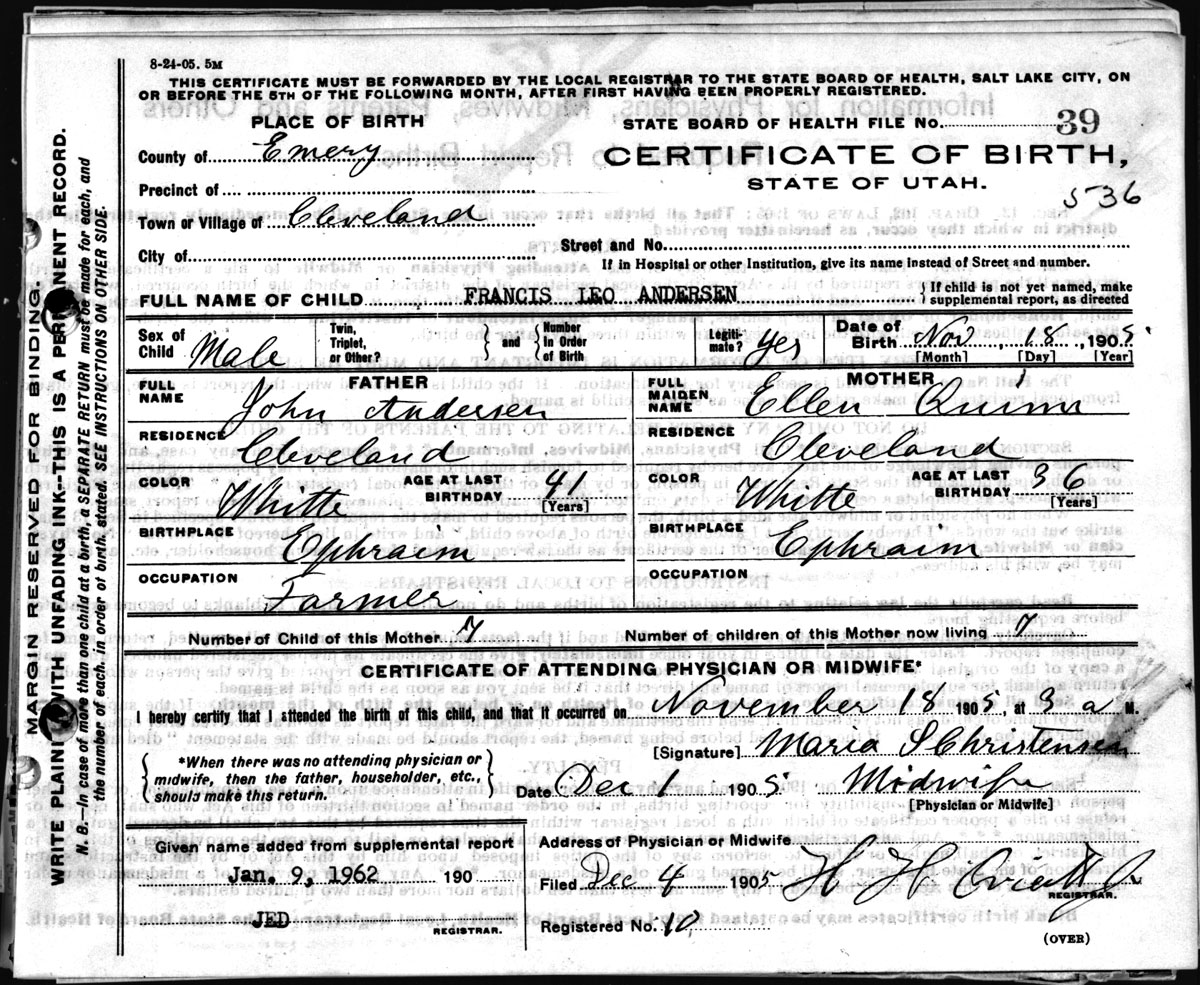 8-24-05. 5M
THIS CERTIFICATE MUST BE FORWARDED BY THE LOCAL REGISTRAR TO THE STATE BOARD OF HEALTH, SALT LAKE CITY, ON
OR BEFORE THE 5TH OF THE FOLLOWING MONTH, AFTER FIRST HAVING BEEN PROPERLY REGISTERED.
PLACE OF BIRTH
STATE BOARD OF HEALTH FILE No. 39
County of Emery
CERTIFICATE OF BIRTH,
STATE OF UTAH.
536
Precinct of
Town or Village of Cleveland
Street and No.
City of
If in Hospital or other Institution, give its name instead of Street and number.
FULL NAME OF CHILD FRANCIS LEO ANDERSEN
{ If child is not yet named, make
supplemental report, as directed
Sex of Child Male
Twin, Triplet, or Other?
} and { Number in Order of Birth
Legitimate? Yes
Date of Birth Nov, 18, 1905
[Month] [Day] [Year]
FATHER
FULL NAME John Andersen
RESIDENCE Cleveland
COLOR White AGE AT LAST BIRTHDAY 41 [Years]
BIRTHPLACE Ephraim
OCCUPATION Farmer
MOTHER
FULL MAIDEN NAME Ellen Quinn
RESIDENCE Cleveland
COLOR White AGE AT LAST BIRTHDAY 36 [Years]
BIRTHPLACE Ephraim
OCCUPATION
Number of Child of this Mother 7 Number of children of this Mother now living 7
CERTIFICATE OF ATTENDING PHYSICIAN OR MIDWIFE*
I hereby certify that I attended the birth of this child, and that it occurred on November 18 1905, at 3 a M.
[Signature] Maria S Christensen
{ *When there was no attending physician or
midwife, then the father, householder, etc.,
should make this return. }
Date Dec 1 1905 Midwife
[Physician or Midwife]
Given name added from supplemental report
Jan. 9, 1962 190
JED
REGISTRAR.
Address of Physician or Midwife
Filed Dec 4 1905 H H
REGISTRAR.
Registered No. 10
(OVER)
MARGIN RESERVED FOR BINDING.
WRITE PLAINLY WITH UNFADING INK--THIS IS A PERMANENT RECORD.
N. B.--In case of more than one child at a birth, a SEPARATE RETURN must be made for each, and
the number of each, in order of birth, stated. SEE INSTRUCTIONS ON OTHER SIDE.